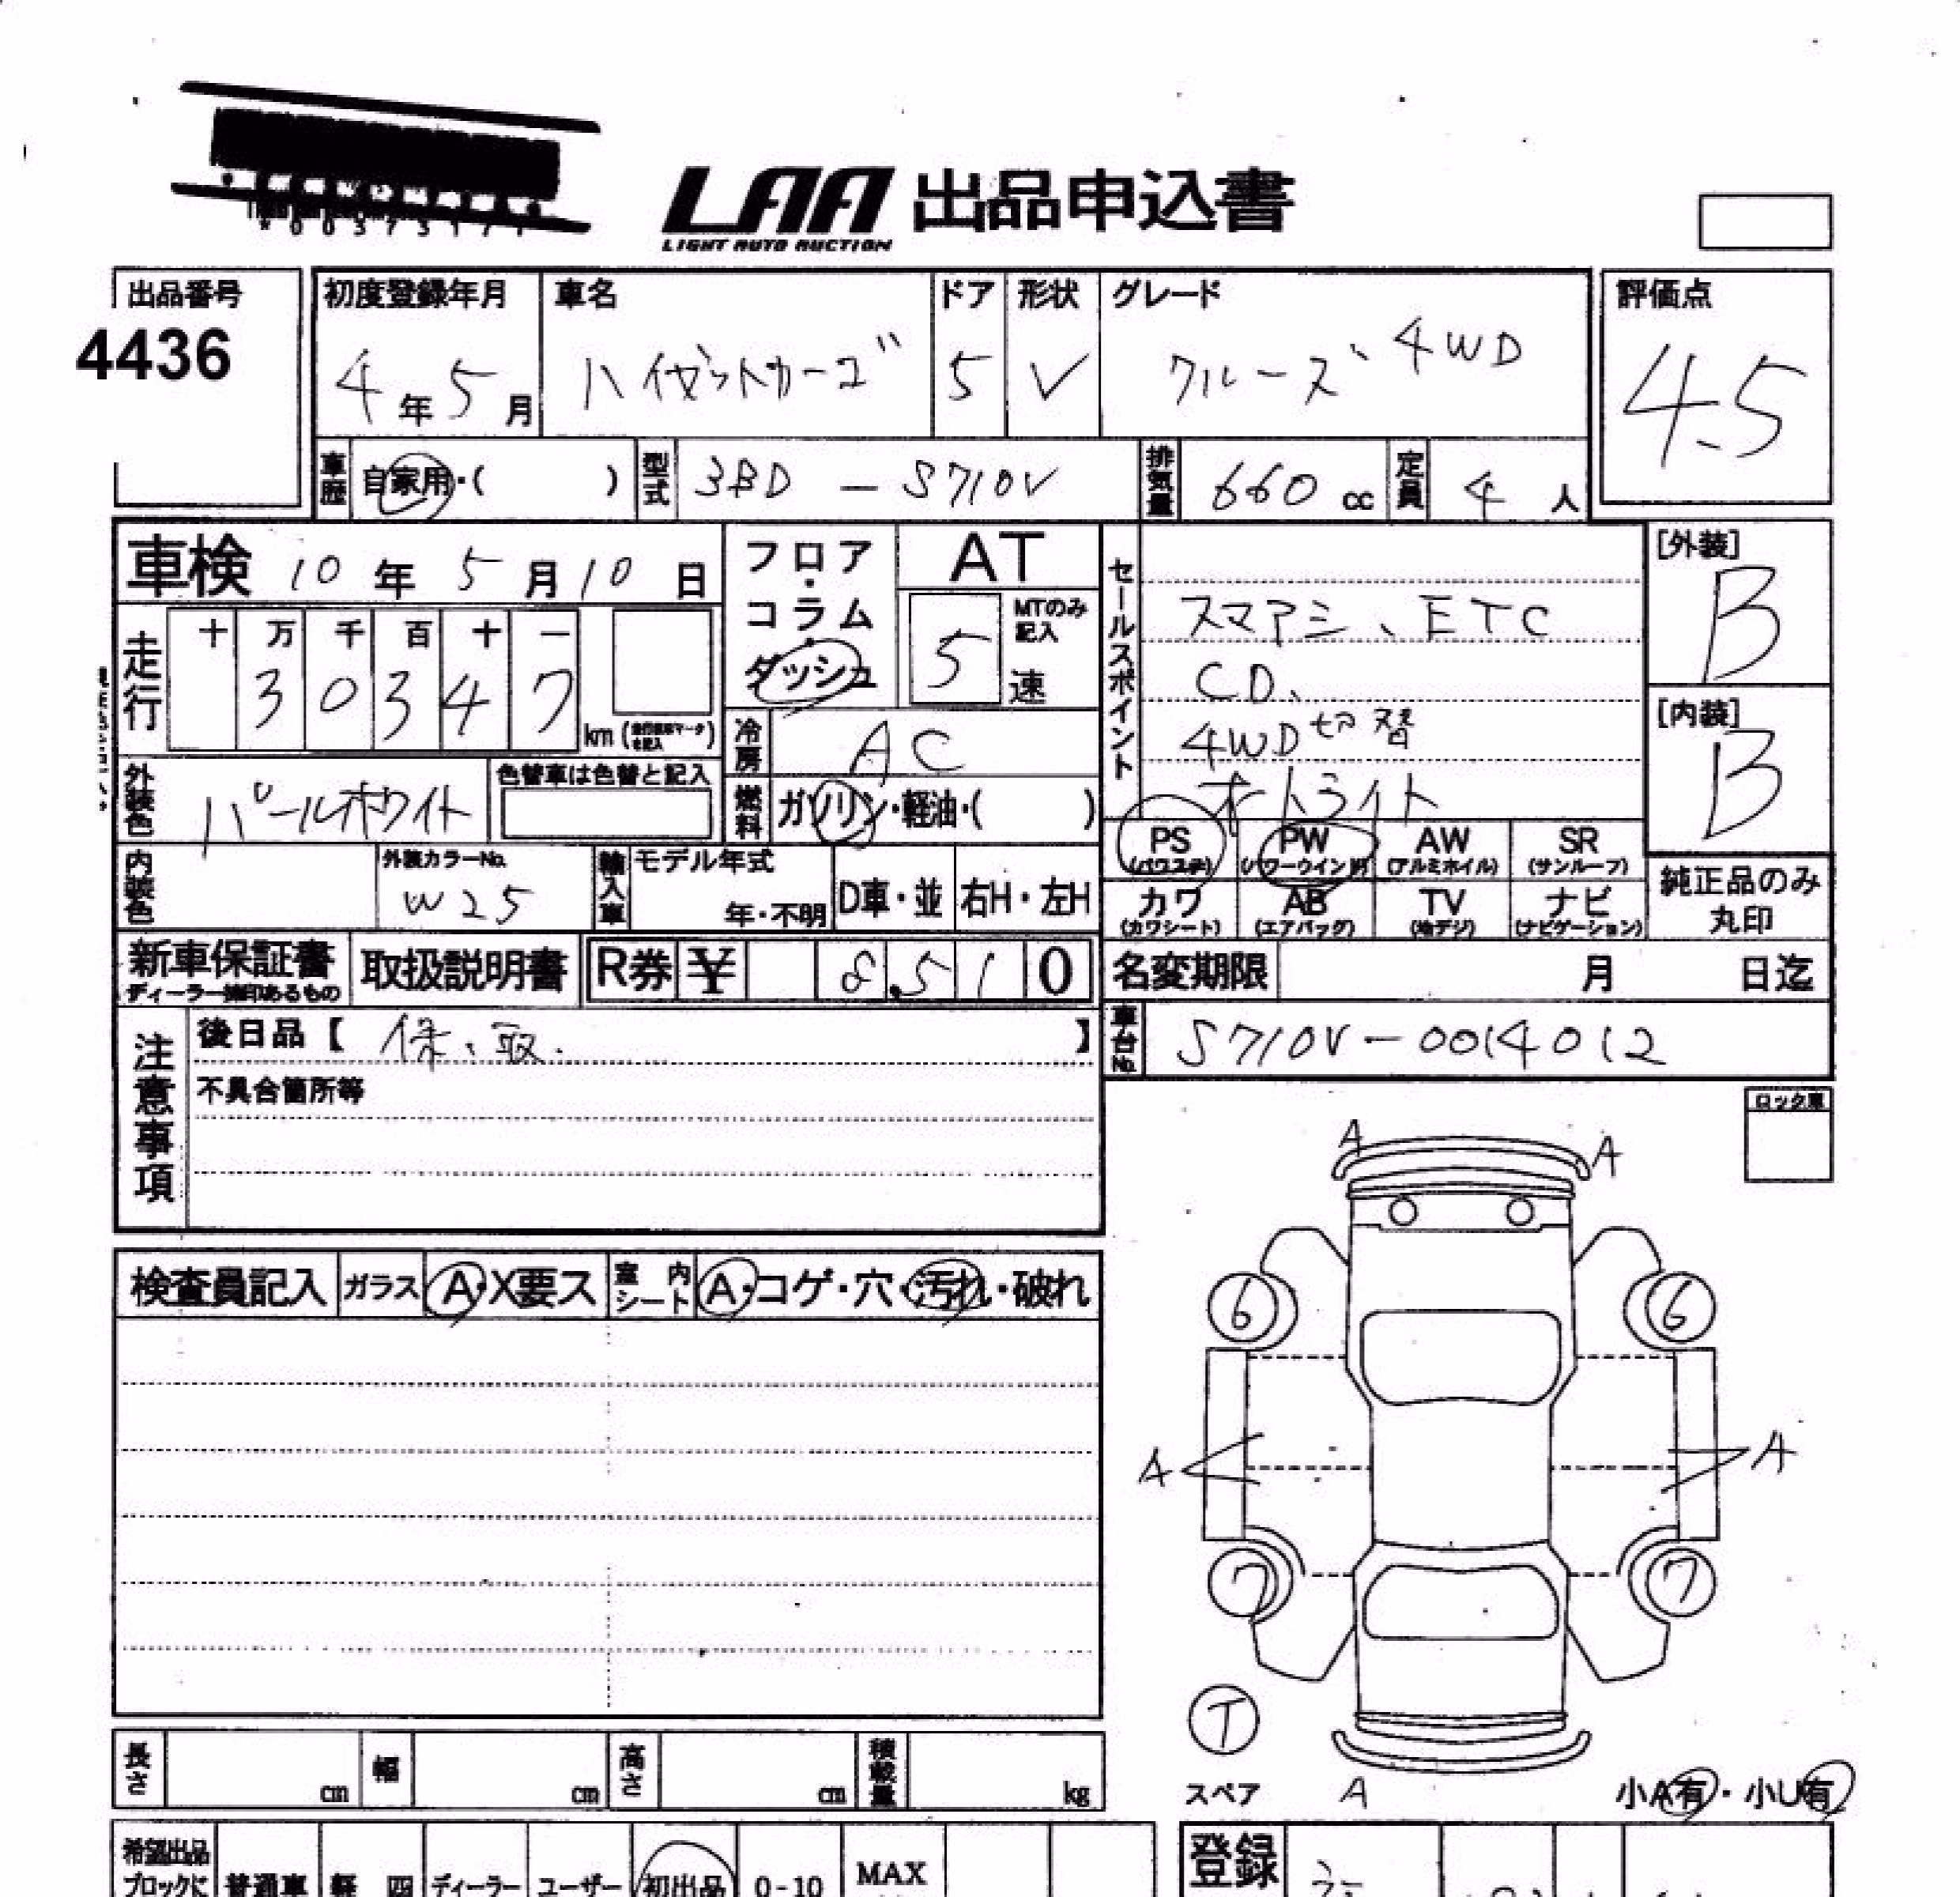 LAA 出品申込書
LIGHT AUTO AUCTION
出品番号
4436
初度登録年月
4年5月
車名
ハイゼットカーゴ
ドア
5
形状
V
グレード
クルーズ、4WD
評価点
4.5
車歴
自家用・( )
型式
3BD - S710V
排気量
660 cc
定員
4 人
車検 10年 5月 10日
フロア・コラム・ダッシュ
AT
5
MTのみ記入
速
走行
十 万 千 百 十 一
3 0 3 4 7
km
冷房
AC
外装色
パールホワイト
色替車は色替と記入
燃料
ガソリン・軽油・( )
内装色
外装カラーNo.
W25
輸入車
モデル年式
年・不明
D車・並
右H・左H
セールスポイント
スマアシ、ETC
CD、
4WD切替
オートライト
[外装]
B
[内装]
B
PS
(パワステ)
PW
(パワーウインドウ)
AW
(アルミホイル)
SR
(サンルーフ)
カワ
(カワシート)
AB
(エアバッグ)
TV
(地デジ)
ナビ
(ナビゲーション)
純正品のみ
丸印
新車保証書
ディーラー捺印あるもの
取扱説明書
R券 ¥ 8,510
名変期限 月 日迄
注意事項
後日品【 保、取. 】
不具合箇所等
車台No.
S710V-0014012
ロック車
検査員記入
ガラス
A・X要ス
室内シート
A・コゲ・穴・汚れ・破れ
A
A
6
6
A
A
7
7
T
スペア
A
小A有・小U有
長さ cm
幅 cm
高さ cm
積載量 kg
希望出品
ブロックに
普通車
軽 四
ディーラー
ユーザー
初出品
0-10
MAX
登録